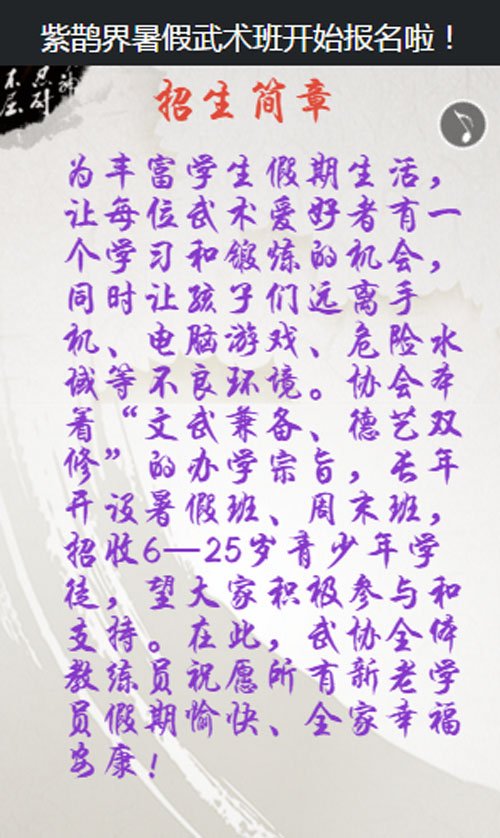 紫鹊界暑假武术班开始报名啦！
招生简章
为丰富学生假期生活，
让每位武术爱好者有一
个学习和锻炼的机会，
同时让孩子们远离手
机、电脑游戏、危险水
域等不良环境。协会本
着“文武兼备、德艺双
修”的办学宗旨，长年
开设暑假班、周末班，
招收6—25岁青少年学
徒，望大家积极参与和
支持。在此，武协全体
教练员祝愿所有新老学
员假期愉快、全家幸福
安康！